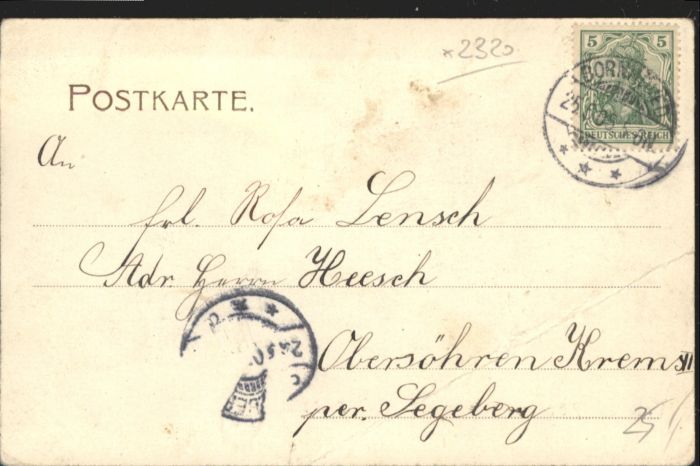 ×2320
5 5
DEUTSCHES REICH
POSTKARTE.
An
Frl. Rosa Lensch
Adr. Herrn Heesch
Obersöhren Krems II
per. Segeberg
25